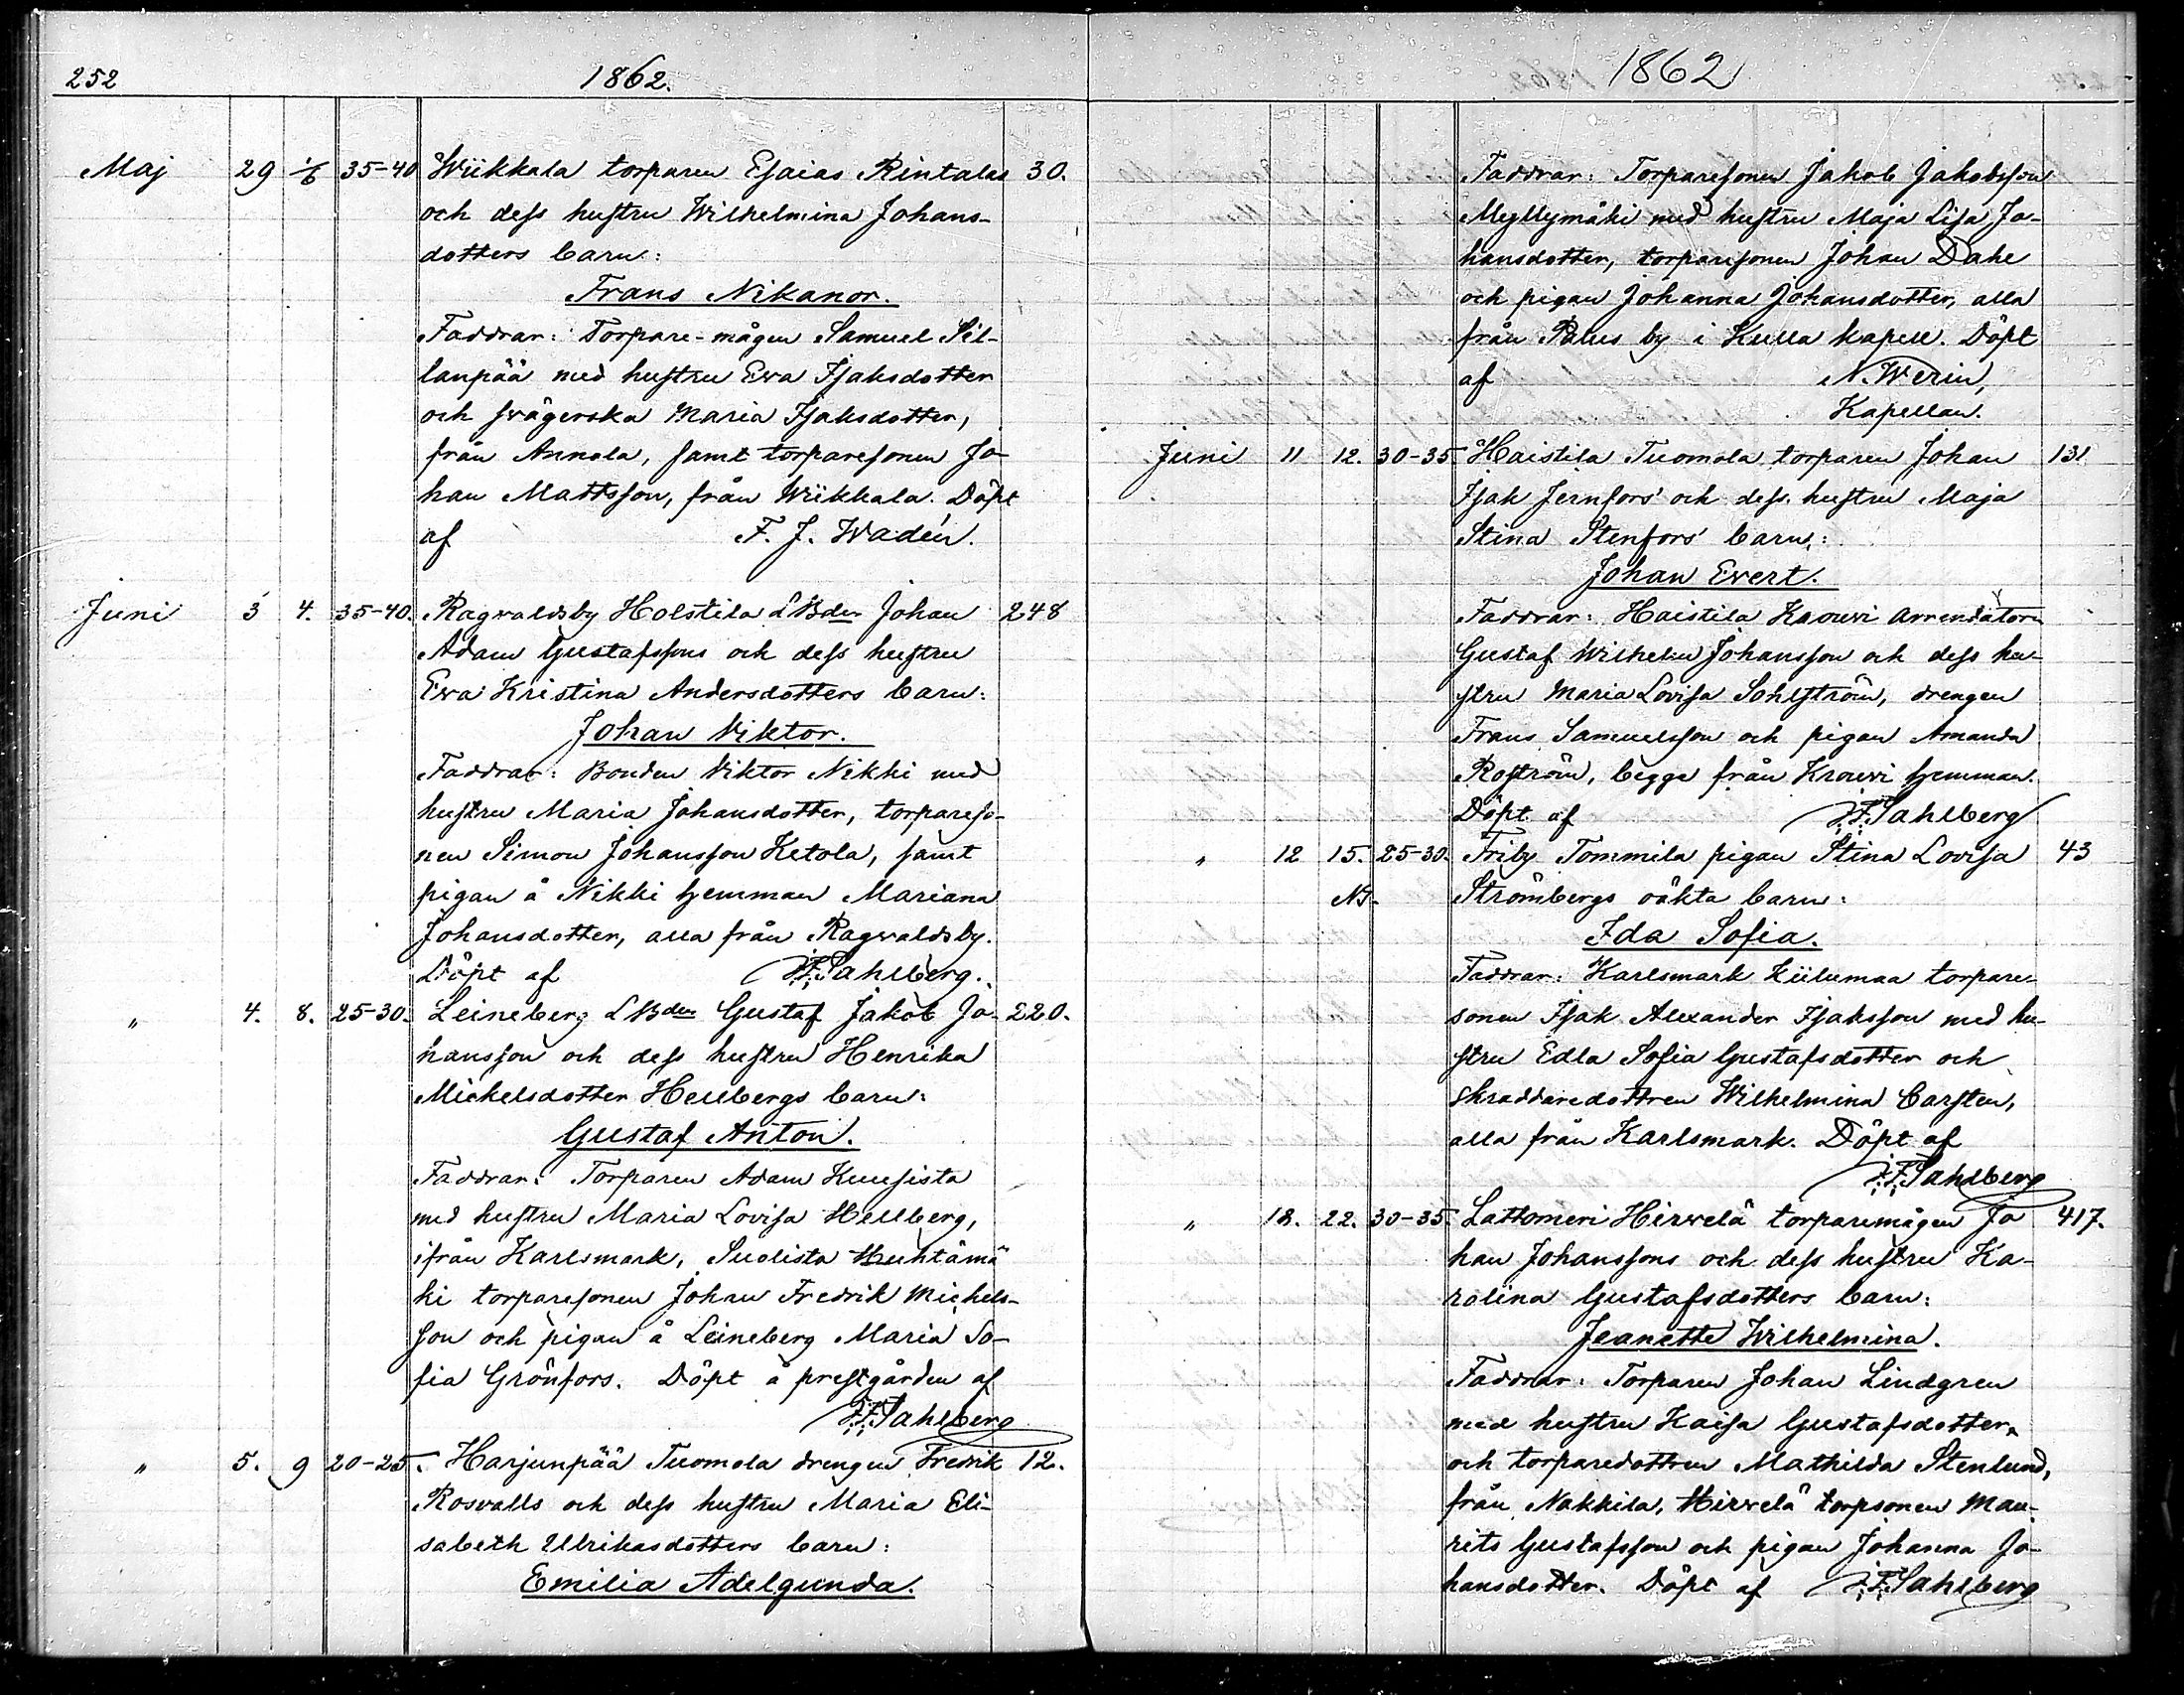 252
1862.
Maj 29 1/6 35-40 Wiikkala torparen Esaias Rintalas 30.
och dess hustru Wilhelmina Johans-
dotters barn:
Frans Nikanor.
Faddrar: Torpare-mågen Samuel Sil-
lanpää med hustru Ewa Isaksdotter
och swägerska Maria Isaksdotter,
från Annola, samt torparesonen Jo-
han Mattsson, från Wiikkala. Döpt
af F. J. Wadén.
Juni 3 4. 35-40. Ragvaldsby Holstila LBden Johan 248
Adam Gustafssons och dess hustru
Ewa Kristina Andersdotters barn:
Johan Viktor.
Faddrar: Bonden Viktor Nikki med
hustru Maria Johansdotter, torpareso-
nen Simon Johansson Ketola, samt
pigan å Nikki hemman Mariana
Johansdotter, alla från Ragvaldsby.
Döpt af F. Sahlberg.
" 4. 8. 25-30. Leineberg LBden Gustaf Jakob Jo- 220.
hansson och dess hustru Henrika
Mickelsdotter Hellbergs barn:
Gustaf Anton.
Faddrar: Torparen Adam Kuusista
med hustru Maria Lovisa Hellberg,
ifrån Karlsmark, Suolista Huhtämä
ki torparesonen Johan Fredrik Michels-
son och pigan å Leineberg Maria So-
fia Grönfors. Döpt å prestgården af
F. Sahlberg
" 5. 9 20-25. Harjunpää Tuomola drengen Fredrik 12.
Rosvalls och dess hustru Maria Eli-
sabeth Ulrikasdotters barn:
Emilia Adelgunda.
1862
Faddrar: Torparesonen Jakob Jakobsson
Myllymäki med hustru Maja Lisa Jo-
hansdotter, torparesonen Johan Dahe
och pigan Johanna Johansdotter, alla
från Palus by i Kulla kapell. Döpt
af N. Werin,
Kapellan.
Juni 11 12. 30-35 Haistila Tuomola torparen Johan 131
Isak Jernfors' och dess hustru Maja
Stina Stenfors' barn:
Johan Evert.
Faddrar: Haistila Krouvi arrendatorn
Gustaf Wilhelm Johansson och dess hu-
stru Maria Lovisa Sohlström, drengen
Frans Samuelsson och pigan Amanda
Roström, begge från Krouvi hemman.
Döpt af F. Sahlberg
" 12 15. 25-30. Friby Tommila pigan Stina Lovisa 43
Strömbergs oäkta barn:
Ida Sofia.
Faddrar: Karlsmark Kiilumaa torpare-
sonen Isak Alexander Isaksson med hu-
stru Edla Sofia Gustafsdotter och
skraddaredottren Wilhelmina Carsten,
alla från Karlsmark. Döpt af
F. Sahlberg
" 18. 22. 30-35. Lattomeri Hirvelä torparemågen Jo 417.
han Johanssons och dess hustru Ka-
rolina Gustafsdotters barn:
Jeanette Wilhelmina.
Faddrar: Torparen Johan Lindgren
med hustru Kaisa Gustafsdotter,
och torparedottren Mathilda Stenlund,
från Nakkila, Hirvelä torpsonen Mau-
rits Gustafsson och pigan Johanna Jo-
hansdotter. Döpt af F. Sahlberg